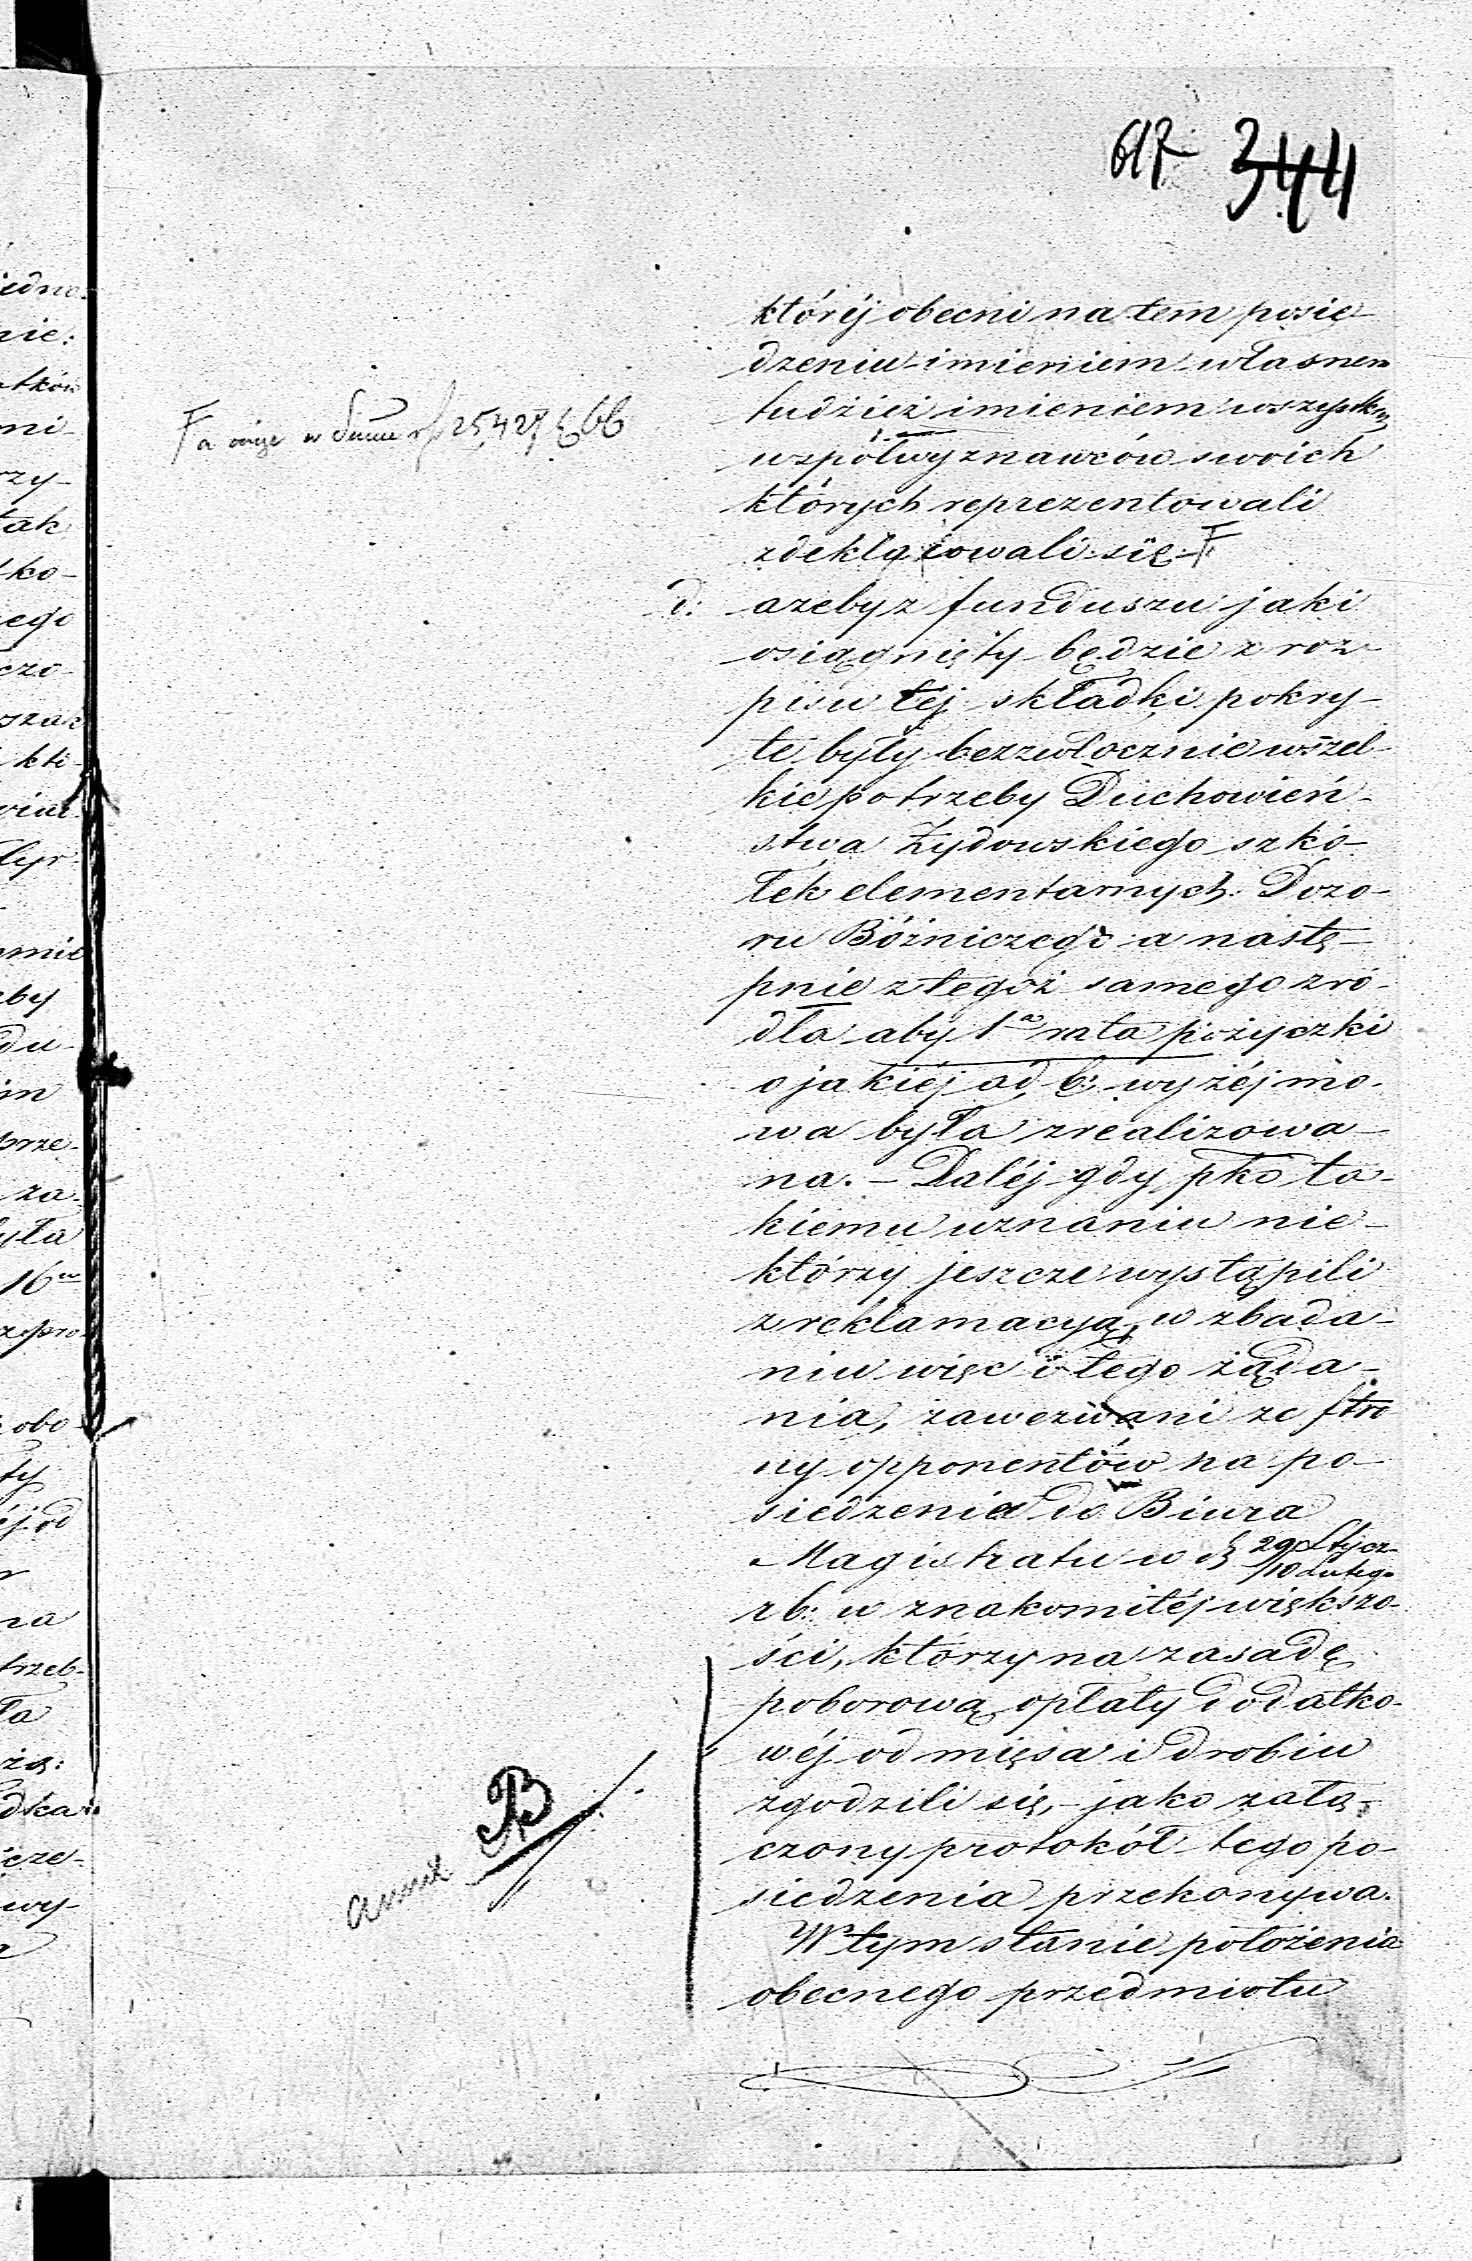 617 344
któréj obecni na tem posie-
dzeniu imieniem własnem
tudzież imieniem wszystkich
współwyznawców swoich
których reprezentowali
zdeklarowali się. F
F a więc w Summie rs 25,427 k 66
d: ażeby z funduszu jaki
osiągnięty będzie z roz-
pisu téj składki pokry-
te były bezzwłocznie wszel-
kie potrzeby Duchowień-
stwa Żydowskiego szkó-
łek elementarnych. Dozo-
ru Bóźniczego a nastę-
pnie z tegoż samego zró-
dła aby 1a rata pożyczki
o jakiéj ad b: wyżéj mo-
wa była zrealizowa-
na. – Daléj gdy pko ta-
kiemu uznaniu nie-
którzy jeszcze wystąpili
z reklamacyą, w zbada-
niu więc i tego żąda-
nia, zawezwani ze stro
ny opponentów na po-
siedzenia do Biura
Magistratu w d 29 Stycz-
/10 Lutego
rb: w znakomitéj większo-
ści, którzy na zasadę
poborową opłaty dodatko-
wéj od mięsa i drobiu
zgodzili się, – jako załą-
czony protokół tego po-
siedzenia przekonywa.
W tym stanie położenia
obecnego przedmiotu
annex B
iedno-
nie:
atków
mi-
rzy-
tak
ko-
ego
czo-
szak
któ-
eby
du-
im
prze-
za-
yła
16
obo
ty
éj od
na
trzeb-
ła
żą:
dka
icze-
wy-